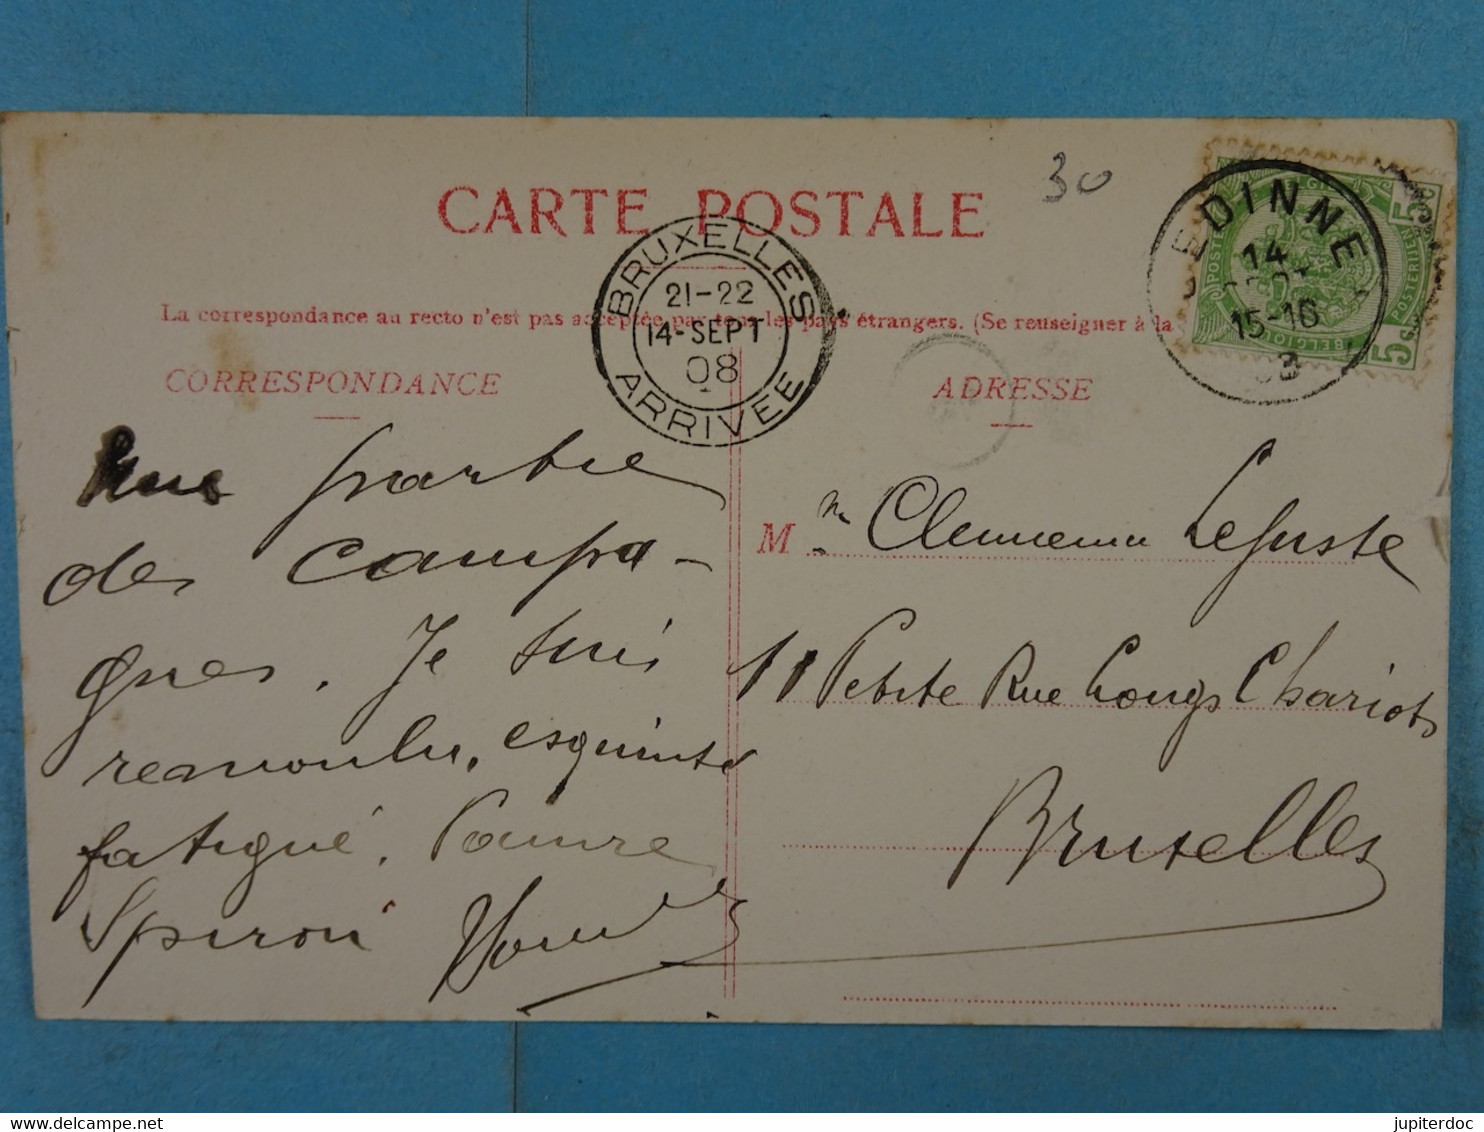 30
CARTE POSTALE
BRUXELLES
21-22
14-SEPT
08
ARRIVEE
EDINNE
14
15-16
POSTERIJEN
BELGIQUE
5
5
La correspondance au recto n'est pas acceptée par tous les pays étrangers. (Se renseigner à la
CORRESPONDANCE
ADRESSE
Une partie
des campa-
gnes. Je suis
remoulu, esquinté
fatigué. Pauvre
Spirou
M
11 Petite Rue Longs Chariots
Bruxelles
jupiterdoc